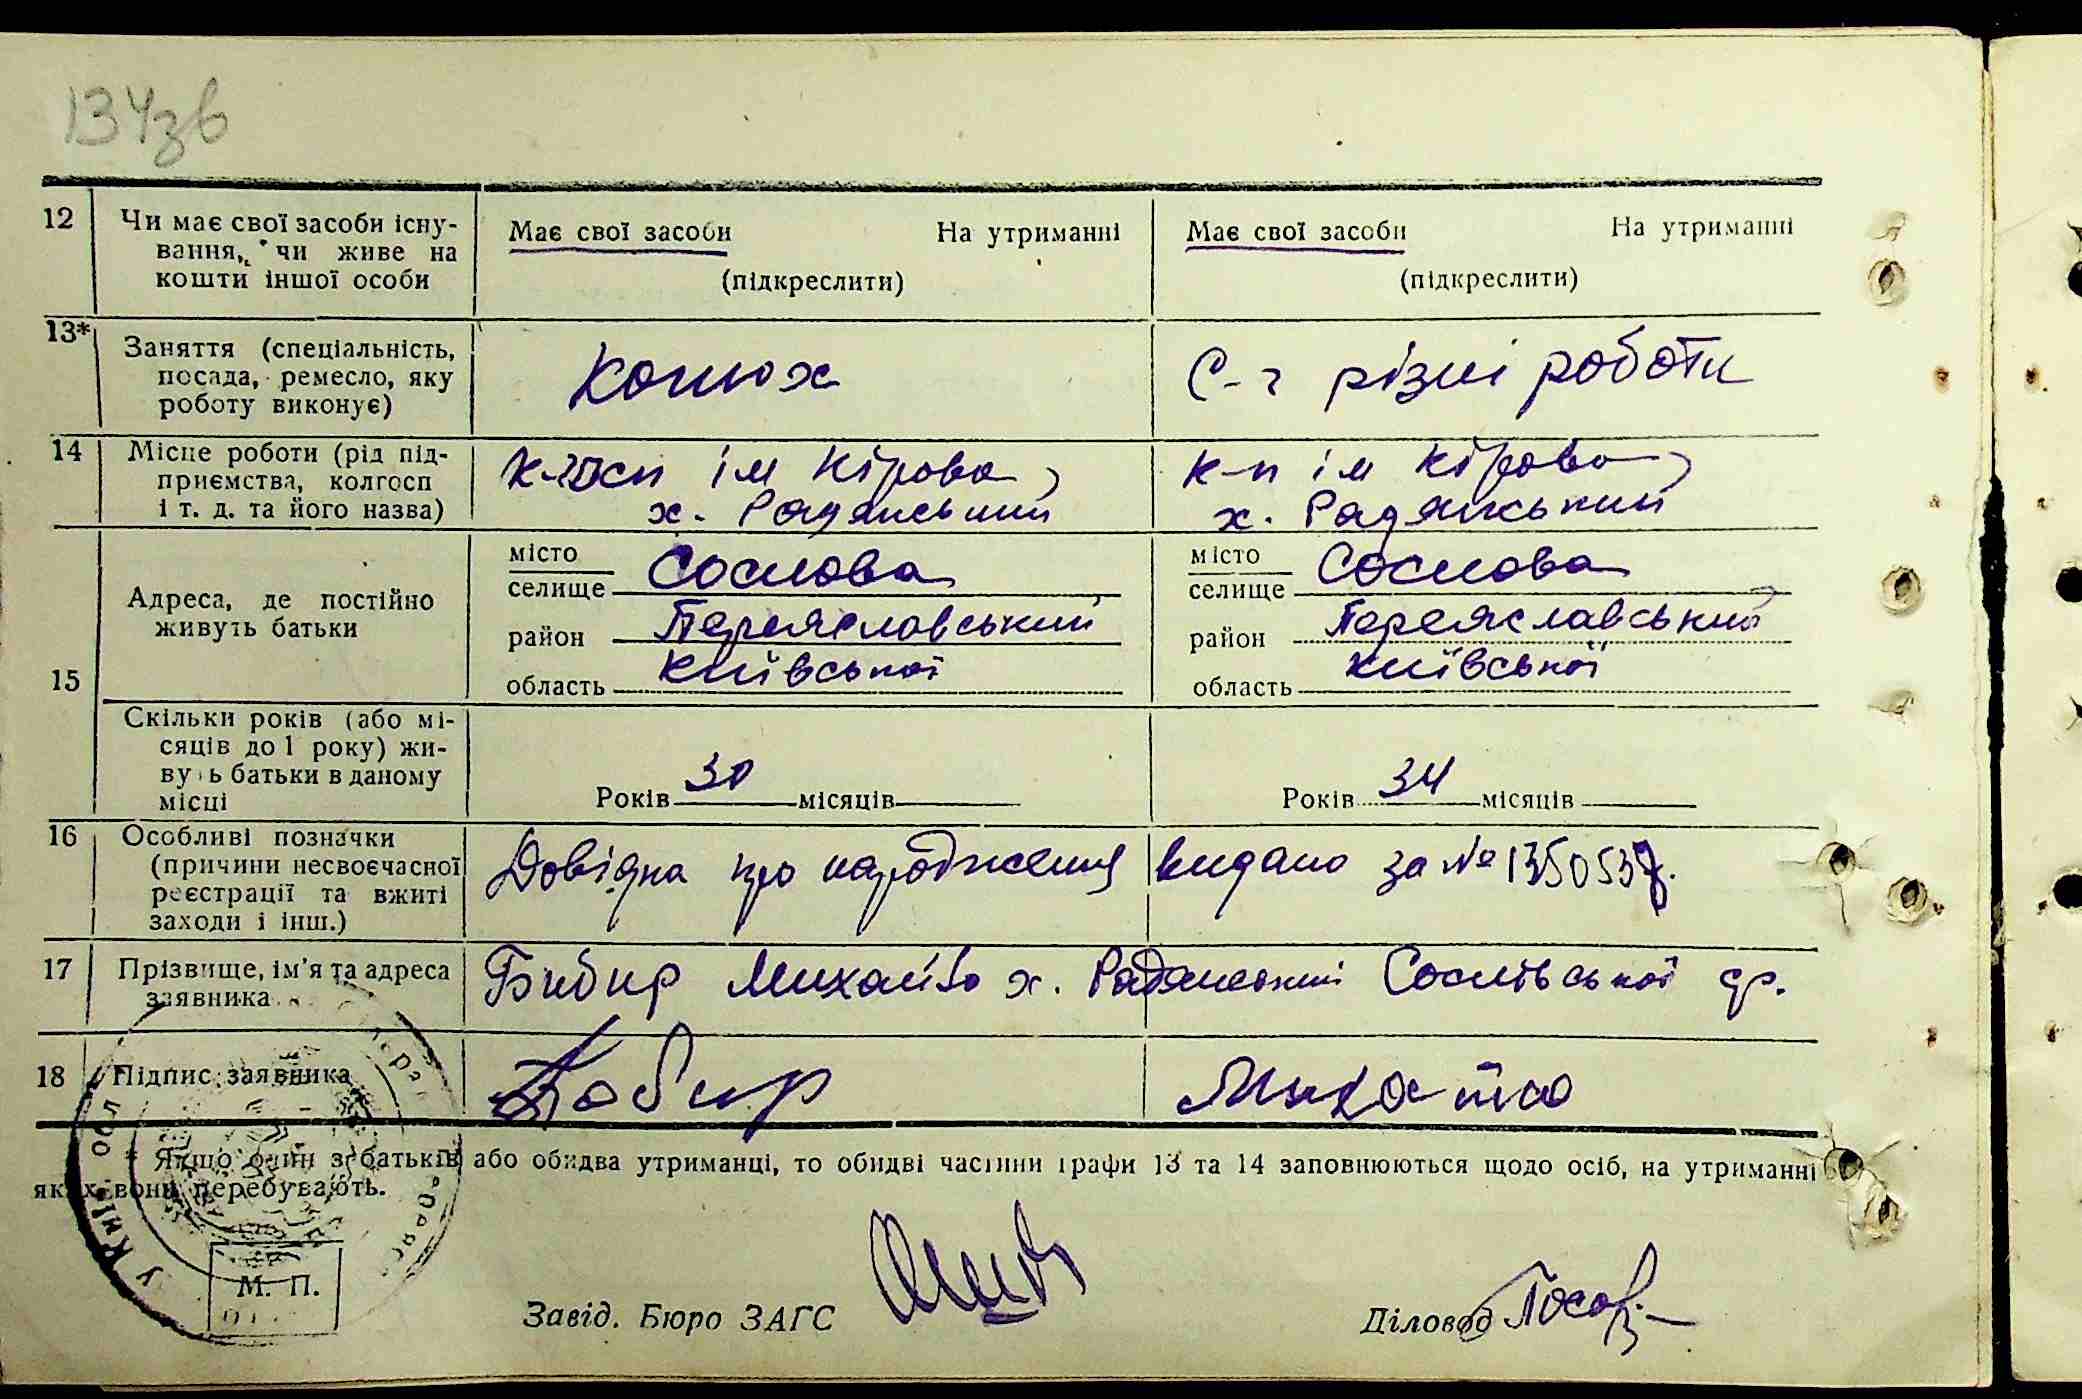 134зв
12 Чи має свої засоби існу- Має свої засоби На утриманні Має свої засоби На утриманні
вання, чи живе на
кошти іншої особи (підкреслити) (підкреслити)
13* Заняття (спеціальність, Конюх С-г різні роботи
посада, ремесло, яку
роботу виконує)
14 Місце роботи (рід під- ім Кірова, к-п ім Кірова,
приємства, колгосп х. Радянський х. Радянський
і т. д. та його назва)
15 Адреса, де постійно живуть батьки
місто Соснова місто Соснова
селище селище
район Переяславський район Переяславський
область Київської область Київської
Скільки років (або мі-
сяців до 1 року) жи-
вуть батьки в даному
місці Років 30 місяців Років 34 місяців
16 Особливі позначки Довідка про народження видано за № 1350537.
(причини несвоєчасної
реєстрації та вжиті
заходи і інш.)
17 Прізвище, ім'я та адреса х. Радянський Соснівської ср.
заявника
18 Підпис заявника
* Якщо один з батьків або обидва утриманці, то обидві частини графи 13 та 14 заповнюються щодо осіб, на утриманні
яких вони перебувають.
М. П.
Завід. Бюро ЗАГС Діловод